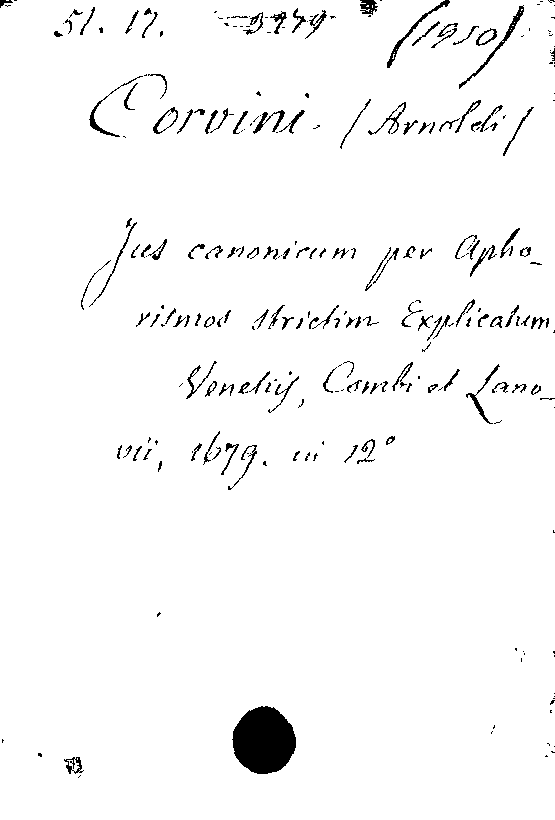 51. 17. 3279 (1950)
Corvini. (Arnoldi)
Jus canonicum per Apho-
rismos strictim Explicatum,
Venetiis, Combi et Lano-
vii, 1679. in 12°